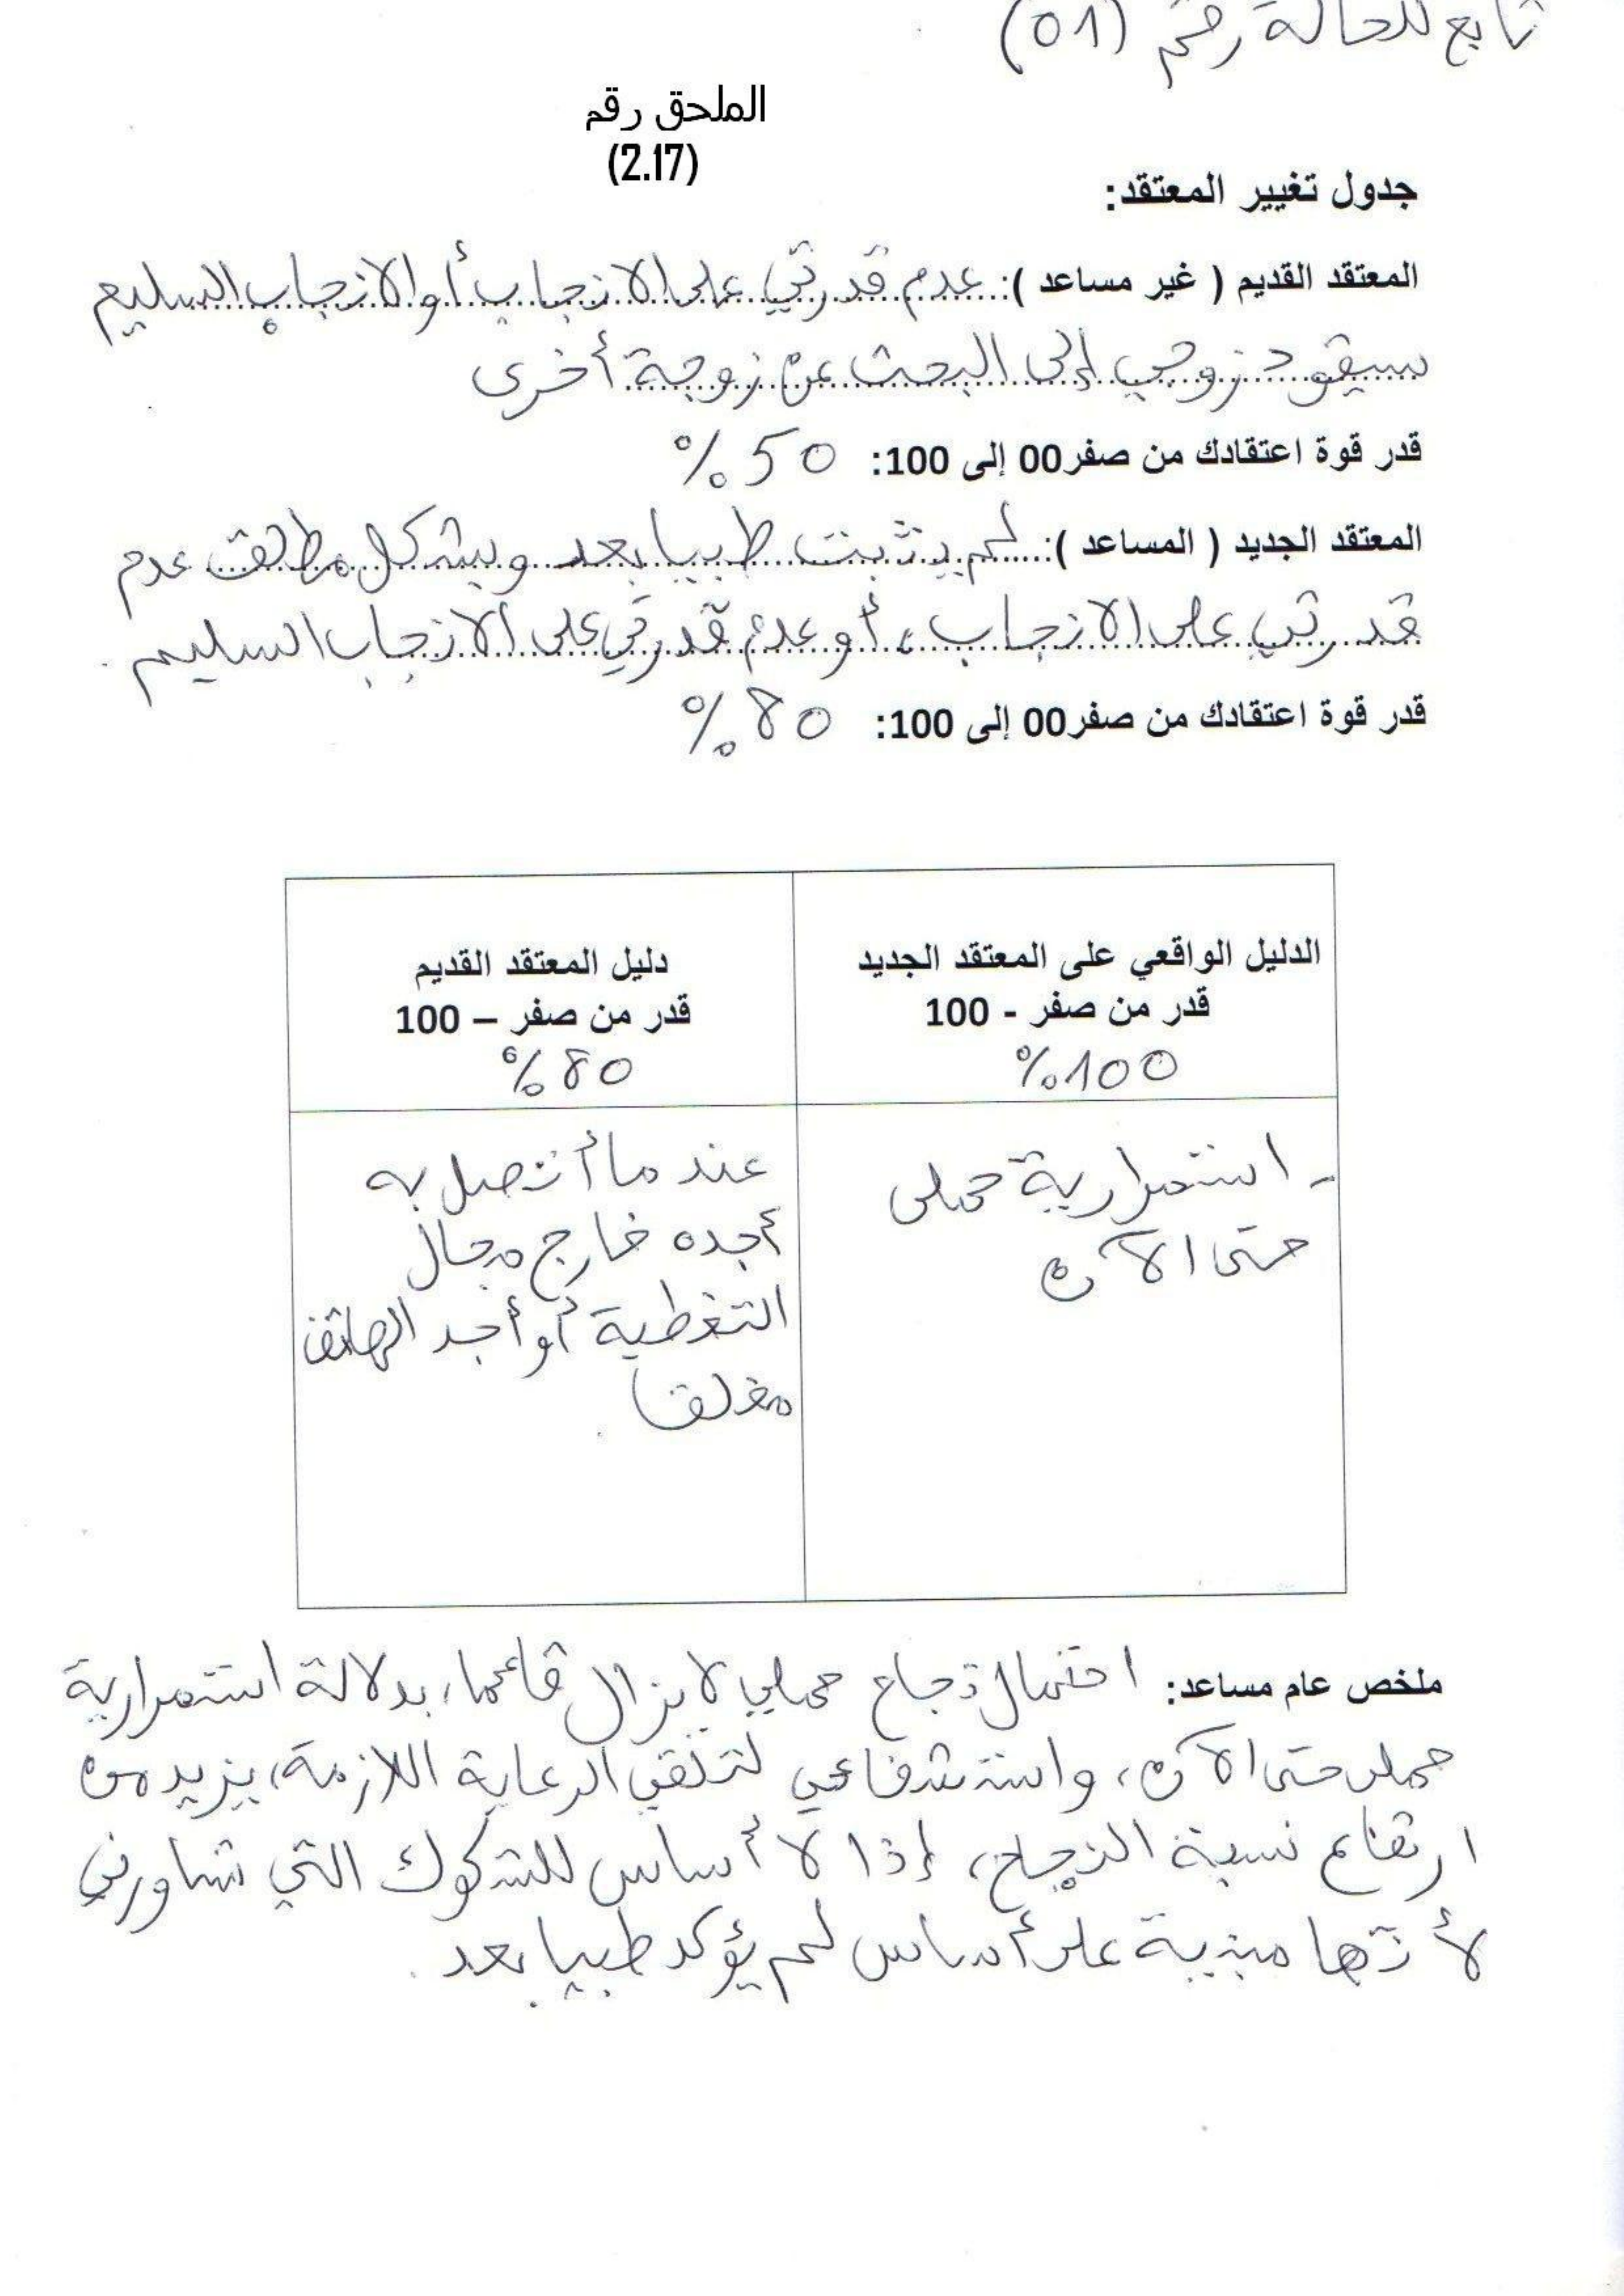 تابع للحالة رقم (01)
الملحق رقم
(2.17)
جدول تغيير المعتقد:
المعتقد القديم ( غير مساعد ): عدم قدرتي على الانجاب أو الانجاب السليم
سيقود زوجي إلى البحث عن زوجة أخرى
قدر قوة اعتقادك من صفر00 إلى 100: 50 %
المعتقد الجديد ( المساعد ): لم يثبت طبيا بعد وبشكل مطلق عدم
قدرتي على الانجاب، أو عدم قدرتي على الانجاب السليم.
قدر قوة اعتقادك من صفر00 إلى 100: 80 %
الدليل الواقعي على المعتقد الجديد
قدر من صفر - 100
100 %
دليل المعتقد القديم
قدر من صفر – 100
80 %
- استمرارية حملي
حتى الآن
عندما أتصل به
أجده خارج مجال
التغطية أو أجد الهاتف
مغلقا.
ملخص عام مساعد: احتمال نجاح حملي لا يزال قائما، بدلالة استمرارية
حملي حتى الآن، واستشفائي لتلقي الرعاية اللازمة، يزيد من
ارتفاع نسبة النجاح، إذا لا أساس للشكوك التي تساورني
لأنها مبنية على أساس لم يؤكد طبيا بعد.